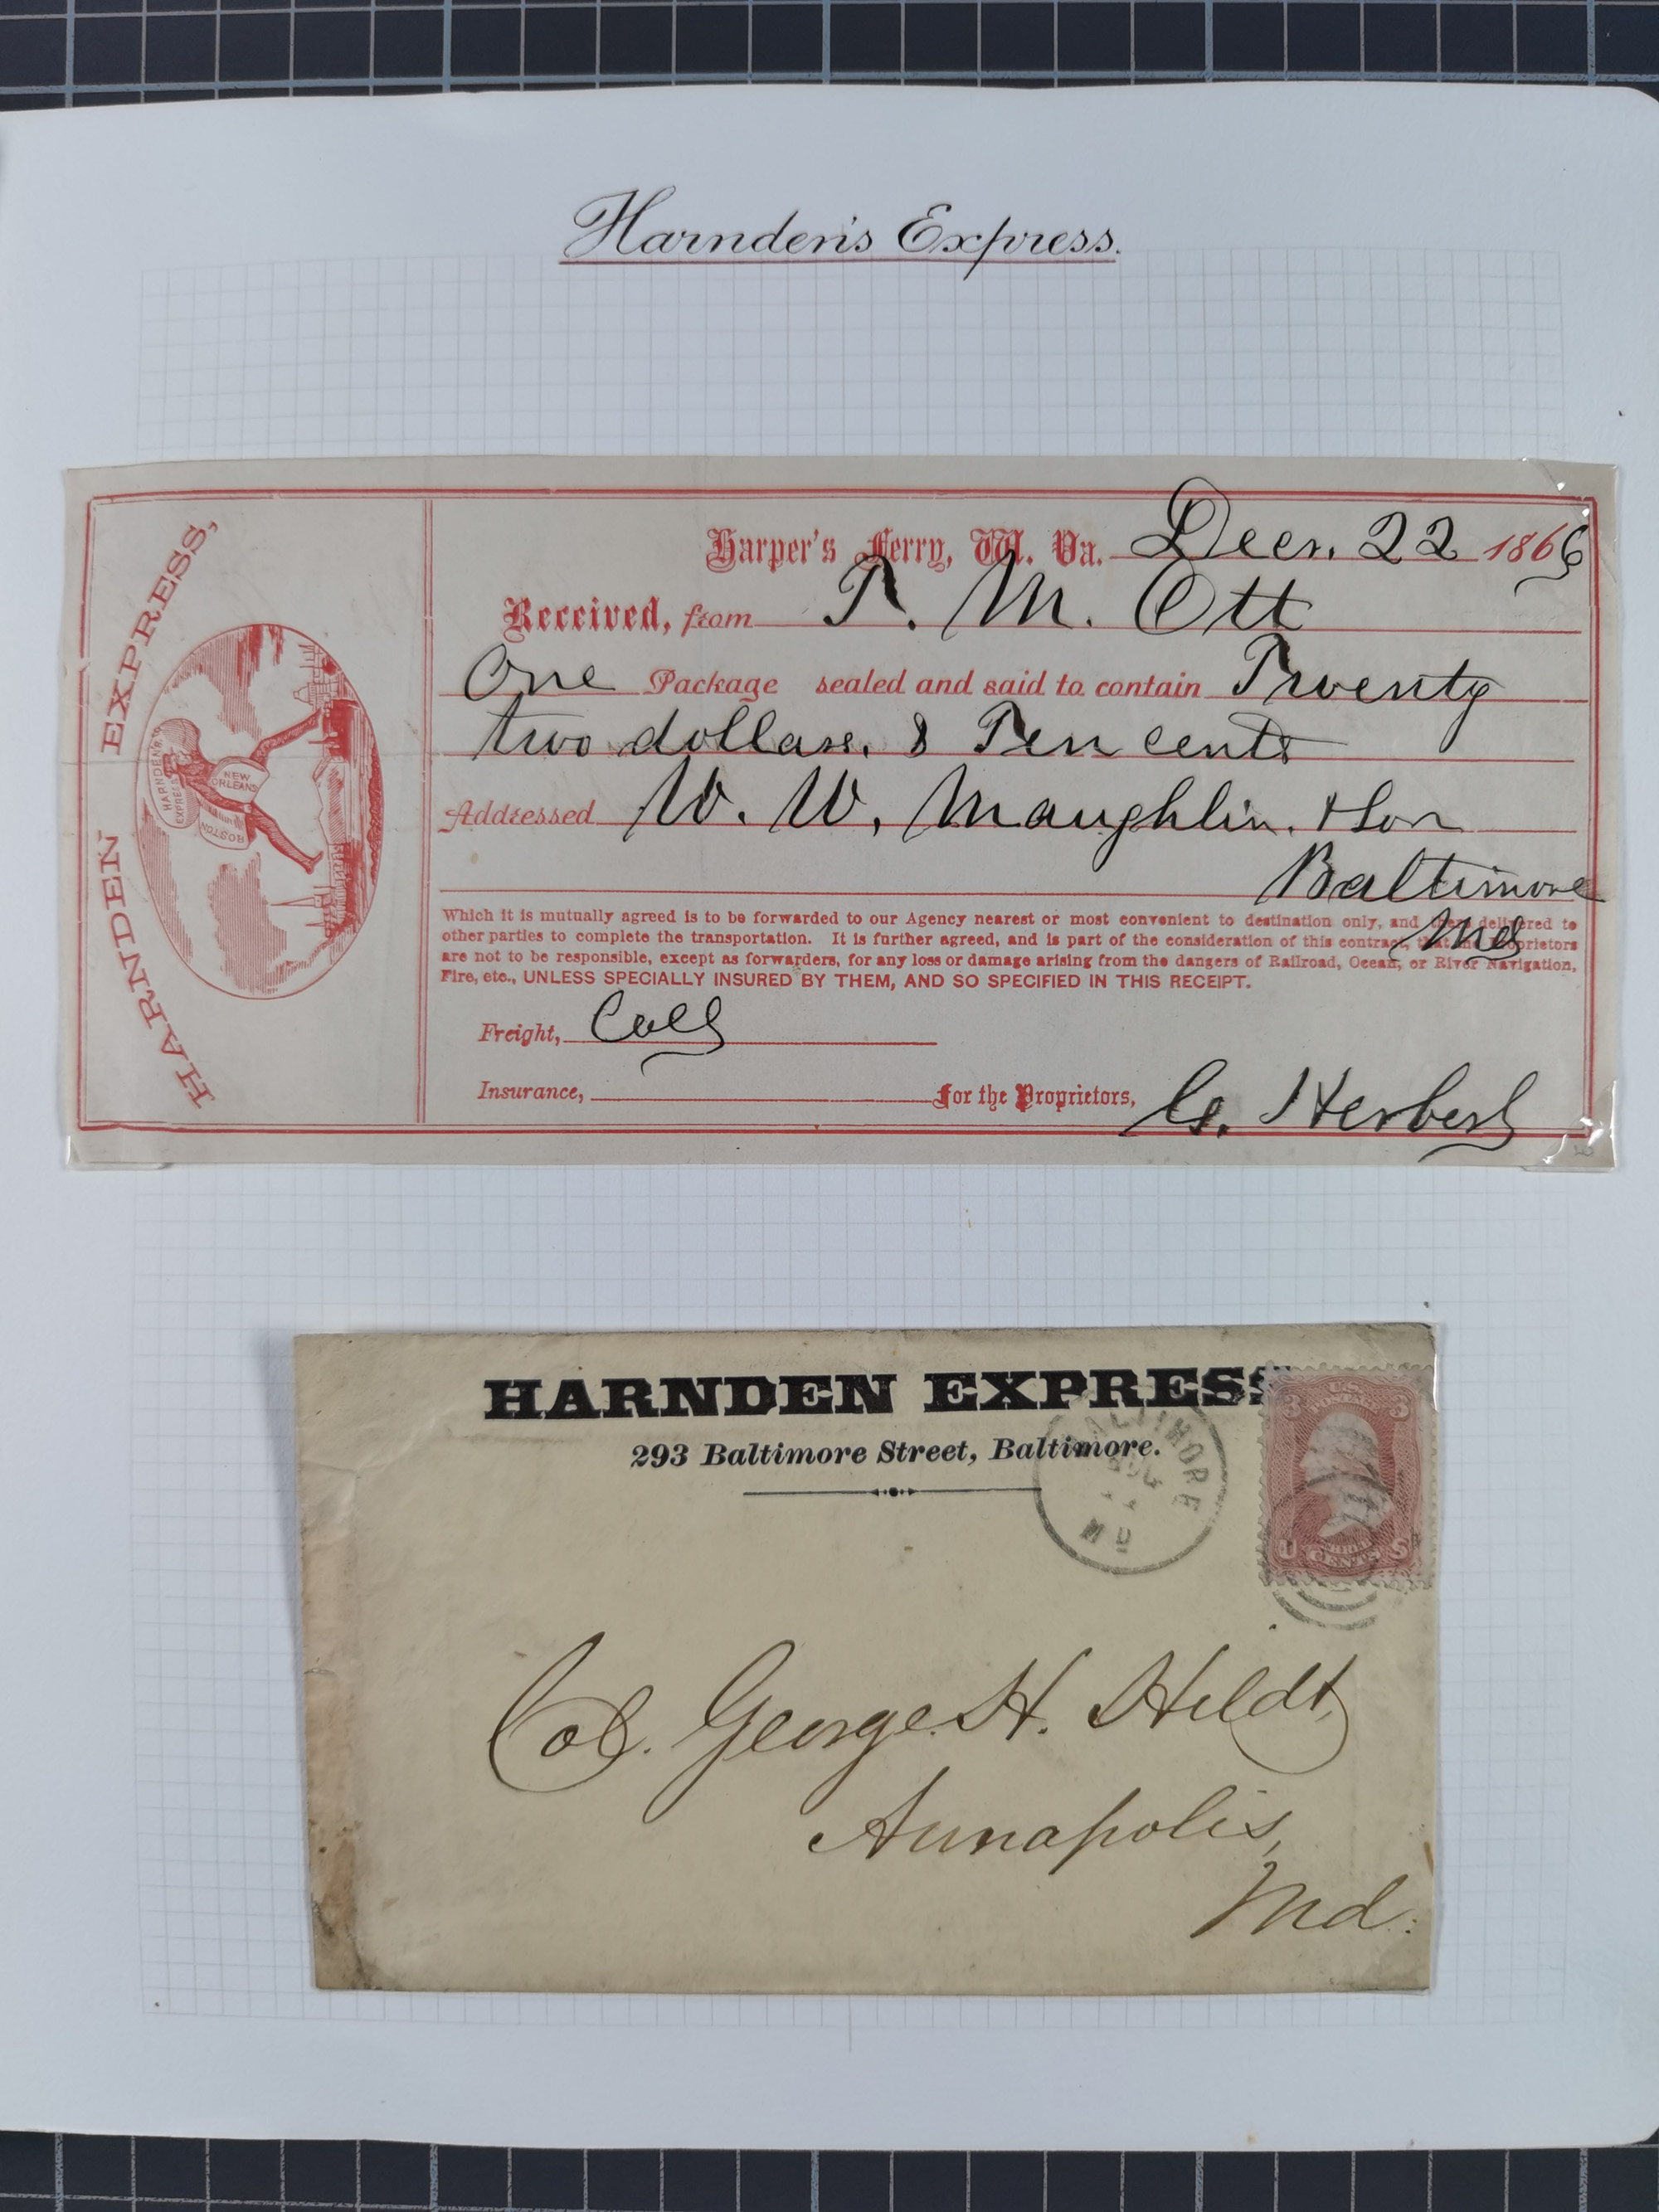 Harnden's Express.
HARNDEN EXPRESS,
HARNDEN'S
EXPRESS
NEW
ORLEANS
BOSTON
Harper's Ferry, W. Va. Decr. 22 1866
Received, from T. M. Ott
One Package sealed and said to contain Twenty
two dollars, & Ten cents
Addressed W. W. Maughlin. & Son
Baltimore
Md
Which it is mutually agreed is to be forwarded to our Agency nearest or most convenient to destination only, and there delivered to
other parties to complete the transportation. It is further agreed, and is part of the consideration of this contract, that the Proprietors
are not to be responsible, except as forwarders, for any loss or damage arising from the dangers of Railroad, Ocean, or River Navigation,
Fire, etc., UNLESS SPECIALLY INSURED BY THEM, AND SO SPECIFIED IN THIS RECEIPT.
Freight, Coll
Insurance, For the Proprietors, G. Herbert
HARNDEN EXPRESS
293 Baltimore Street, Baltimore.
BALTIMORE
U.S.
POSTAGE
3 3
U S
THREE
CENTS
Col. George H. Hildt,
Annapolis,
Md.